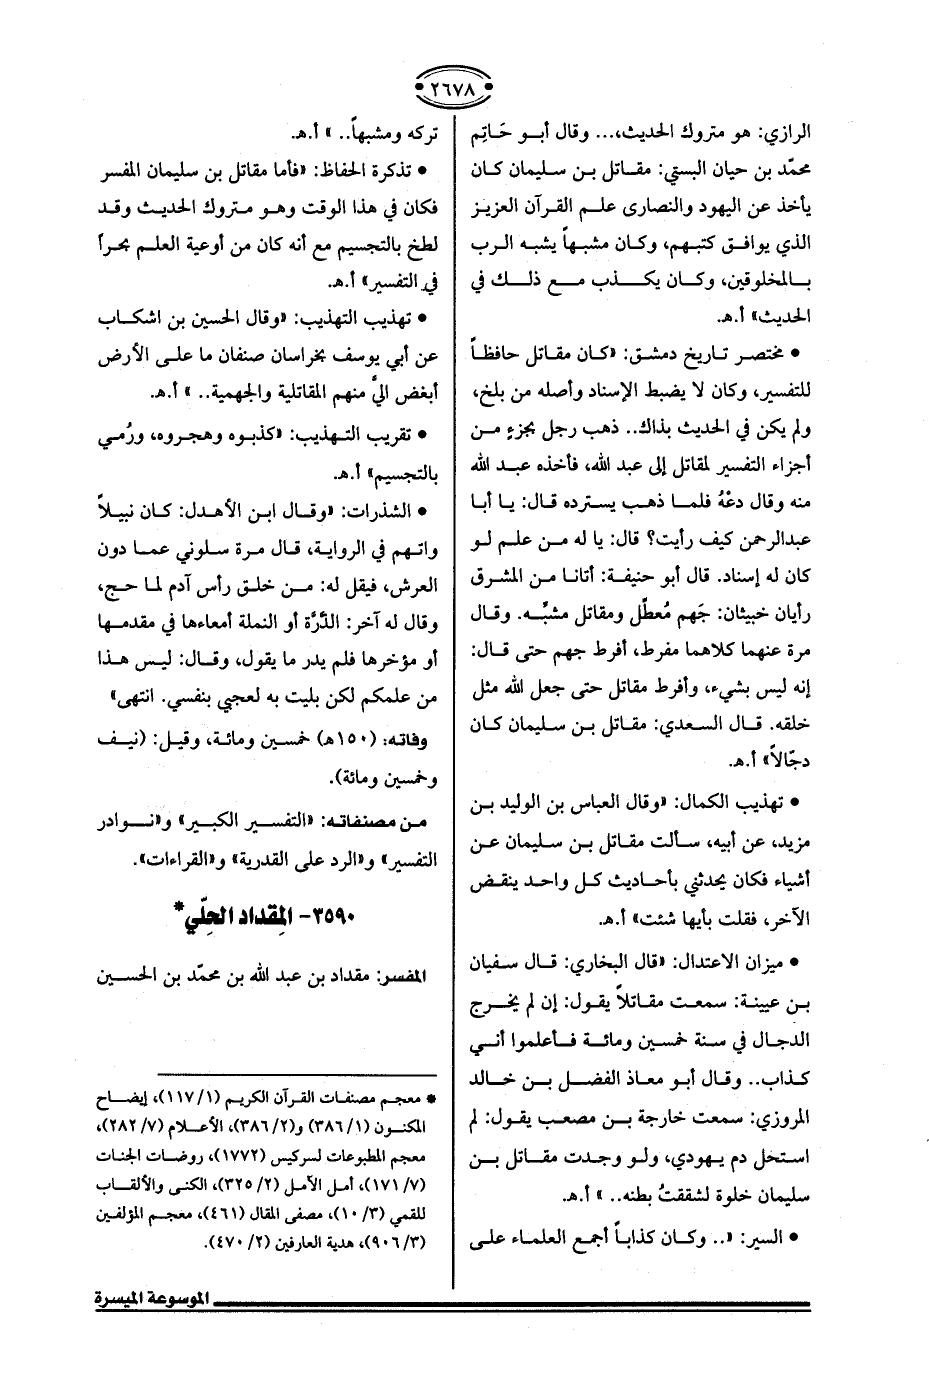 ٢٦٧٨
الرازي: هو متروك الحديث،... وقال أبو حَاتِم
محمّد بن حيان البستي: مقاتل بن سليمان كان
يأخذ عن اليهود والنصارى علم القرآن العزيز
الذي يوافق كتبهم، وكان مشبهاً يشبه الرب
بالمخلوقين، وكان يكذب مع ذلك في
الحديث» أ.هـ.
• مختصر تاريخ دمشق: «كان مقاتل حافظاً
للتفسير، وكان لا يضبط الإسناد وأصله من بلخ،
ولم يكن في الحديث بذاك.. ذهب رجل بجزءٍ من
أجزاء التفسير لمقاتل إلى عبد الله، فأخذه عبد الله
منه وقال دعْهُ فلما ذهب يسترده قال: يا أبا
عبدالرحمن كيف رأيت؟ قال: يا له من علم لو
كان له إسناد. قال أبو حنيفة: أتانا من المشرق
رأيان خبيثان: جَهم مُعطِّل ومقاتل مشبِّه. وقال
مرة عنهما كلاهما مفرط، أفرط جهم حتى قال:
إنه ليس بشيء، وأفرط مقاتل حتى جعل الله مثل
خلقه. قال السعدي: مقاتل بن سليمان كان
دجّالاً» أ.هـ.
• تهذيب الكمال: «وقال العباس بن الوليد بن
مزيد، عن أبيه، سألت مقاتل بن سليمان عن
أشياء فكان يحدثني بأحاديث كل واحد ينقض
الآخر، فقلت بأيها شئت» أ.هـ.
• ميزان الاعتدال: «قال البخاري: قال سفيان
بن عيينة: سمعت مقاتلاً يقول: إن لم يخرج
الدجال في سنة خمسين ومائة فأعلموا أني
كذاب.. وقال أبو معاذ الفضل بن خالد
المروزي: سمعت خارجة بن مصعب يقول: لم
استحل دم يهودي، ولو وجدت مقاتل بن
سليمان خلوة لشققت بطنه.. » أ.هـ.
• السير: «.. وكان كذاباً أجمع العلماء على
تركه ومشبهاً.. » أ.هـ.
• تذكرة الحفاظ: «فأما مقاتل بن سليمان المفسر
فكان في هذا الوقت وهو متروك الحديث وقد
لطخ بالتجسيم مع أنه كان من أوعية العلم بحراً
في التفسير» أ.هـ.
• تهذيب التهذيب: «وقال الحسين بن اشكاب
عن أبي يوسف بخراسان صنفان ما على الأرض
أبغض اليَّ منهم المقاتلية والجهمية.. » أ.هـ.
• تقريب التهذيب: «كذبوه وهجروه، ورُمي
بالتجسيم» أ.هـ.
• الشذرات: «وقال ابن الأهدل: كان نبيلاً
واتهم في الرواية، قال مرة سلوني عما دون
العرش، فيقل له: من خلق رأس آدم لما حج،
وقال له آخر: الذَّرَّة أو النملة أمعاءها في مقدمها
أو مؤخرها فلم يدر ما يقول، وقال: ليس هذا
من علمكم لكن بليت به لعجبي بنفسي. انتهى»
وفاته: (١٥٠هـ) خمسين ومائة، وقيل: (نيف
وخمسين ومائة).
من مصنفاته: «التفسير الكبير» و«نوادر
التفسير» و«الرد على القدرية» و«القراءات».
٣٥٩٠- المِقداد الحِلّي*
المفسر: مقداد بن عبد الله بن محمّد بن الحسين
* معجم مصنفات القرآن الكريم (١/ ١١٧)، إيضاح
المكنون (١/ ٣٨٦) و(٢/ ٣٨٦)، الأعلام (٧/ ٢٨٢)،
معجم المطبوعات لسركيس (١٧٧٢)، روضات الجنات
(٧/ ١٧١)، أمل الآمل (٢/ ٣٢٥)، الكنى والألقاب
للقمي (٣/ ١٠)، مصفى المقال (٤٦١)، معجم المؤلفين
(٣/ ٩٠٦)، هدية العارفين (٢/ ٤٧٠).
الموسوعة الميسرة